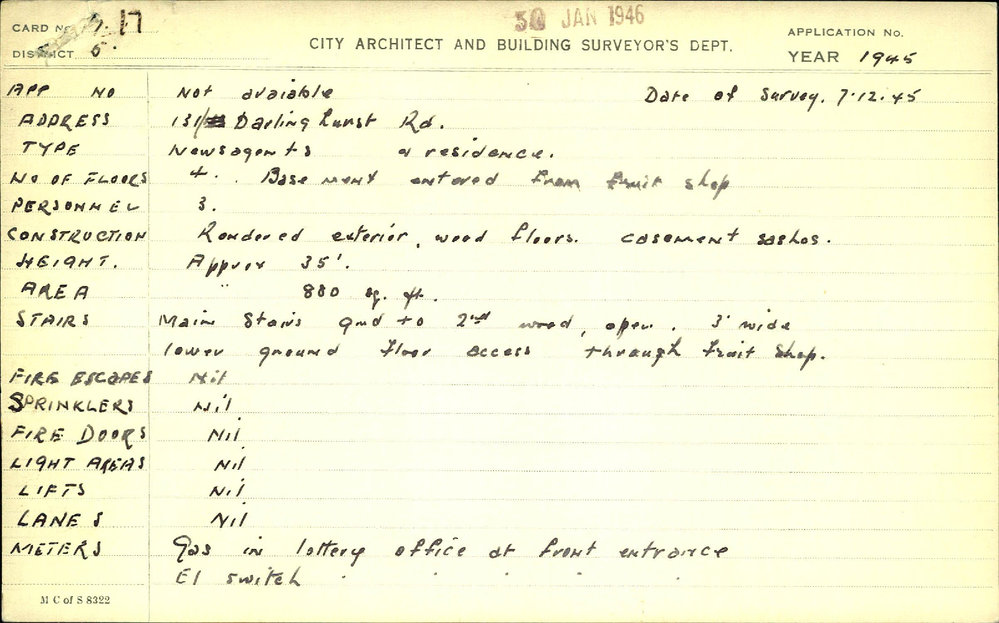 CARD No. 17
30 JAN 1946
APPLICATION No.
DISTRICT 5.
CITY ARCHITECT AND BUILDING SURVEYOR'S DEPT.
YEAR 1945
APP NO Not avaiable Date of Survey. 7.12.45
ADDRESS 131/ Darlinghurst Rd.
TYPE Newsagents & residence.
NO OF FLOORS 4. Basement entered from fruit shop
PERSONNEL 3.
CONSTRUCTION Rendered exterior, wood floors. casement sashes.
HEIGHT. Approx 35'.
AREA " 880 sq. ft.
STAIRS Main Stairs gnd to 2nd wood, open. 3' wide
lower ground floor access through fruit shop.
FIRE ESCAPES Nil
SPRINKLERS Nil
FIRE DOORS Nil
LIGHT AREAS Nil
LIFTS Nil
LANES Nil
METERS Gas in lottery office at front entrance
El switch . . . . .
M C of S 8322